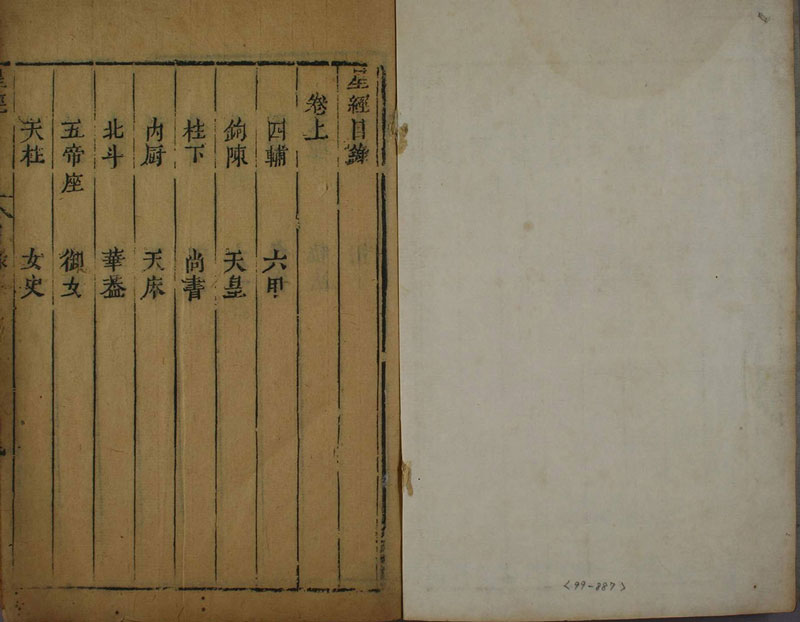 星經目錄
卷上
四輔 六甲
鉤陳 天皇
柱下 尚書
内厨 天床
北斗 華蓋
五帝座 御女
天柱 女史
星經
<99-887>